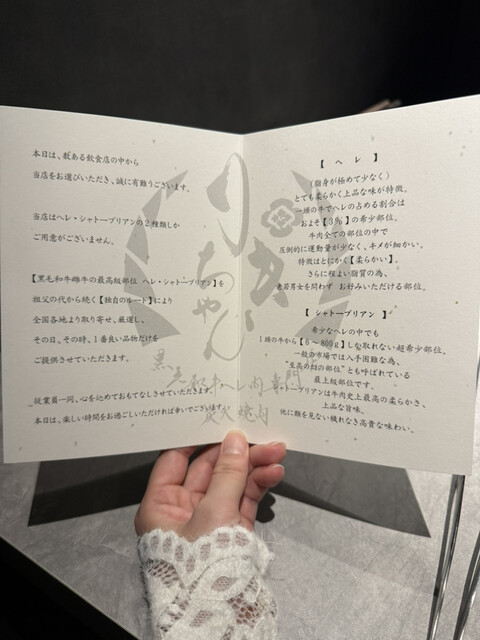 本日は、数ある飲食店の中から
当店をお選びいただき、誠に有難うございます。
当店はヘレ・シャトーブリアンの2種類しか
ご用意がございません。
【黒毛和牛雌牛の最高級部位 ヘレ・シャトーブリアン】を
祖父の代から続く【独自のルート】により
全国各地より取り寄せ、厳選し、
その日、その時、1番良い品物だけを
ご提供させていただきます。
従業員一同、心を込めておもてなしさせていただきます。
本日は、楽しい時間をお過ごしいただければ幸いでございます。
【 ヘレ 】
(脂身が極めて少なく)
とても柔らかく上品な味が特徴。
一頭の牛でヘレの占める割合は
およそ【3%】の希少部位。
牛肉全ての部位の中で
圧倒的に運動量が少なく、キメが細かい。
特徴はとにかく【柔らかい】。
さらに程よい脂質の為、
老若男女を問わず お好みいただける部位。
【 シャトーブリアン 】
希少なヘレの中でも
1頭の牛から【6~800g】しか取れない超希少部位。
一般の市場では入手困難な為、
“至高の幻の部位”とも呼ばれている
最上級部位です。
ブリアンは牛肉史上最高の柔らかさ、
上品な旨味、
他に類を見ない穢れなき高貴な味わい。
黒毛和牛ヘレ肉専門
炭火焼肉